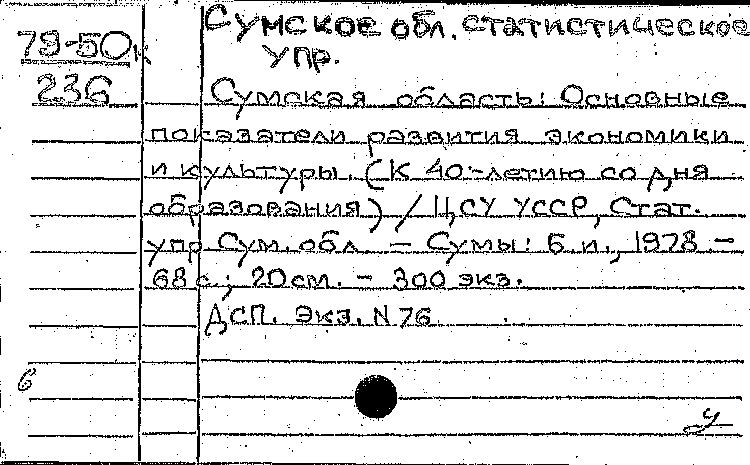 79-50к
236
Сумское обл. статистическое
упр.
Сумская область: Основные
показатели развития экономики
и культуры. (К 40-летию со дня
образования) / ЦСУ УССР, Стат.
упр. Сум. обл. – Сумы: Б. и., 1978 –
68 с.; 20 см. – 300 экз.
ДСП. Экз. N 76
6
у